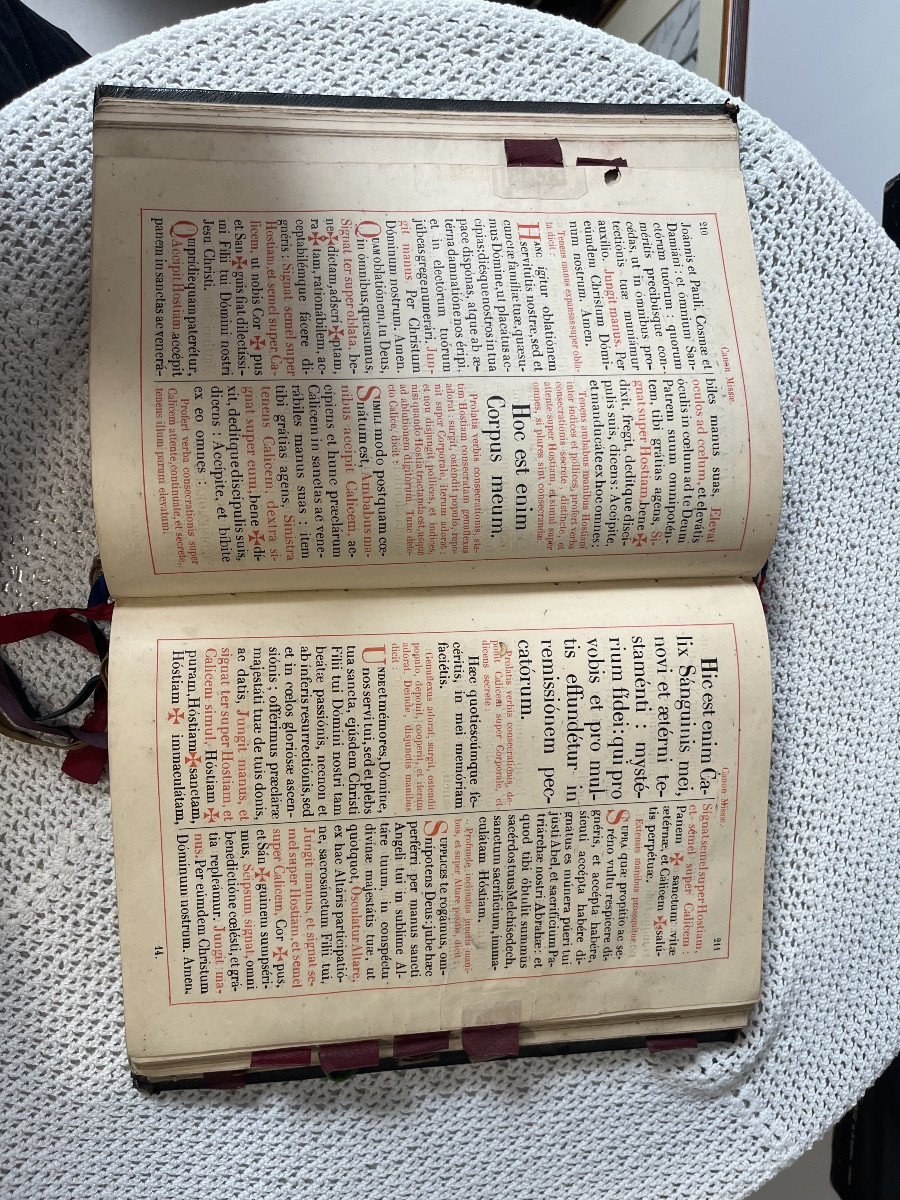 210
Canon Missæ.
Joánnis et Pauli, Cosmæ et
Damiáni : et ómnium San-
ctórum tuórum : quorum
méritis precibúsque con-
cédas, ut in ómnibus pro-
tectiónis tuæ muniámur
auxílio. Jungit manus. Per
eumdem Christum Dómi-
num nostrum. Amen.
Tenens manus expansas super obla-
ta dicit :
HANC ígitur oblatiónem
servitútis nostræ, sed et
cunctæ famíliæ tuæ, quæsu-
mus Dómine, ut placátus ac-
cípias, diésque nostros in tua
pace dispónas, atque ab æ-
térna damnatióne nos éripi,
et in electorum tuórum
júbeas grege numerári. Jun-
git manus. Per Christum
Dóminum nostrum. Amen.
QUAM oblatiónem, tu Deus,
in ómnibus, quæsumus,
Signat ter super oblata, be-
ne ✠ díctam, adscrí ✠ ptam,
ra ✠ tam, rationábilem, ac-
ceptabilémque fácere di-
gnéris : Signat semel super
Hostiam, et semel super Ca-
licem, ut nobis Cor ✠ pus
et San ✠ guis fiat dilectíssi-
mi Fílii tui Dómini nostri
Jesu Christi.
QUI prídie quam paterétur,
Accipit Hostiam, accépit
panem in sanctas ac venerá-
biles manus suas, Elevat
oculos ad cœlum, et elevátis
óculis in cœlum, ad te Deum
Patrem suum omnipotén-
tem, tibi grátias agens, Si-
gnat super Hostiam, bene ✠
díxit, fregit, dedítque discí-
pulis suis, dicens : Accípite,
et manducáte ex hoc omnes :
Tenens ambabus manibus Hostiam
inter indices et pollices, profert verba
consecrationis secrete, distincte, et
attente super Hostiam, et simul super
omnes, si plures sint consecrandæ.
Hoc est enim
Corpus meum.
Prolatis verbis consecrationis, sta-
tim Hostiam consecratam genuflexus
adorat : surgit, ostendit populo, repo-
nit super Corporale, iterum adorat :
et non disjungit pollices, et indices,
nisi quando Hostia tractanda est, usque
ad ablutionem digitorum. Tunc dete-
cto Calice, dicit :
SIMILI modo postquam cœ-
nátum est, Ambabus ma-
nibus accipit Calicem, ac-
cípiens et hunc præclárum
Cálicem in sanctas ac vene-
rábiles manus suas : item
tibi grátias agens, Sinistra
tenens Calicem, dextra si-
gnat super eum, bene ✠ dí-
xit, dedítque discípulis suis,
dicens : Accípite, et bíbite
ex eo omnes :
Profert verba consecrationis super
Calicem attente, continuate, et secrete,
tenens illum parum elevatum.
Canon Missæ.
211
Hic est enim Ca-
lix Sánguinis mei,
novi et ætérni te-
staménti : mysté-
rium fídei : qui pro
vobis et pro mul-
tis effundétur in
remissiónem pec-
catórum.
Prolatis verbis consecrationis, de-
ponit Calicem super Corporale, et
dicens secrete :
Hæc quotiescúmque fe-
céritis, in mei memóriam
faciétis.
Genuflexus adorat, surgit, ostendit
populo, deponit, cooperit, et iterum
adorat. Deinde, disjunctis manibus
dicit :
UNDE et mémores, Dómine,
nos servi tui, sed et plebs
tua sancta, ejúsdem Christi
Fílii tui Dómini nostri tam
beátæ passiónis, necnon et
ab ínferis resurrectiónis, sed
et in cœlos gloriósæ ascen-
siónis ; offérimus præcláræ
majestáti tuæ de tuis donis,
ac datis, Jungit manus, et
signat ter super Hostiam, et
Calicem simul. Hóstiam ✠
puram, Hóstiam ✠ sanctam,
Hóstiam ✠ immaculátam,
Signat semel super Hostiam,
et semel super Calicem :
Panem ✠ sanctum vitæ
ætérnæ, et Cálicem ✠ salú-
tis perpétuæ.
Extensis manibus prosequitur :
SUPRA quæ propítio ac se-
réno vultu respícere di-
gnéris, et accépta habére,
sícuti accépta habére di-
gnátus es múnera púeri tui
justi Abel, et sacrifícium Pa-
triárchæ nostri Abrahæ : et
quod tibi óbtulit summus
sacérdos tuus Melchísedech,
sanctum sacrifícium, imma-
culátam Hóstiam.
Profunde inclinatus, junctis mani-
bus, et super Altare positis, dicit :
SUPPLICES te rogámus, om-
nípotens Deus : jube hæc
perférri per manus sancti
Angeli tui in sublíme Al-
táre tuum, in conspéctu
divínæ majestátis tuæ, ut
quotquot, Osculatur Altare,
ex hac Altáris participatió-
ne, sacrosánctum Fílii tui,
Jungit manus, et signat se-
mel super Hostiam, et semel
super Calicem, Cor ✠ pus,
et Sán ✠ guinem sumpséri-
mus, Seipsum signat, omni
benedictióne cœlésti, et grá-
tia repleámur. Jungit ma-
nus. Per eúmdem Christum
Dóminum nostrum. Amen.
14.